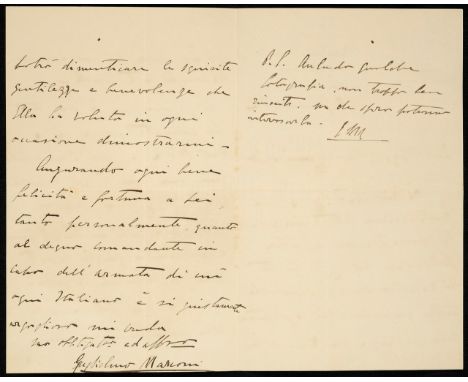 potrò dimenticare le squisite
gentilezze e benevolenze che
Ella ha voluto in ogni
occasione dimostrarmi -
Augurando ogni bene
felicità e fortuna a Lei,
tanto personalmente, quanto
al degno comandante in
capo dell'armata di cui
ogni Italiano è sì giustamente
orgoglioso mi creda
suo obbligato ed affmo
Guglielmo Marconi
P.S. Accludo qualche
fotografia, non troppo ben
riuscita, ma che spero potranno
interessarla.
GM